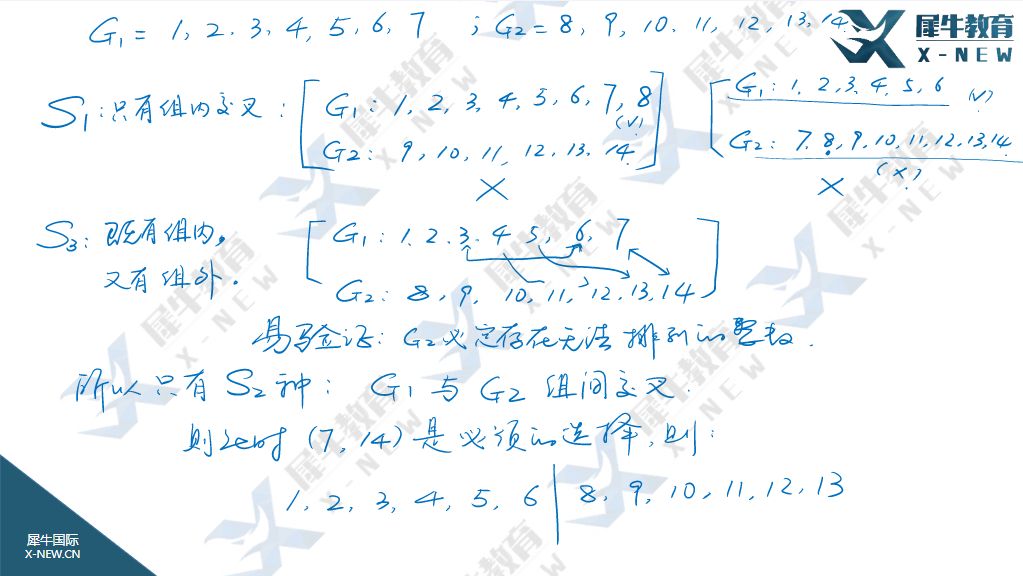 G₁ = 1, 2, 3, 4, 5, 6, 7 ; G₂ = 8, 9, 10, 11, 12, 13, 14
犀牛教育
X-NEW
S₁: 只有组内交叉:
G₁: 1, 2, 3, 4, 5, 6, 7, 8
(√)
G₂: 9, 10, 11, 12, 13, 14
×
G₁: 1, 2, 3, 4, 5, 6 (√)
G₂: 7, 8, 9, 10, 11, 12, 13, 14
(×)
×
S₃: 既有组内,
又有组外.
G₁: 1, 2, 3, 4, 5, 6, 7
G₂: 8, 9, 10, 11, 12, 13, 14
易验证: G₂必定存在无法排列的整数.
所以只有S₂种: G₁与G₂组间交叉.
则此时 (7, 14) 是必须的选择, 则:
1, 2, 3, 4, 5, 6 | 8, 9, 10, 11, 12, 13
犀牛国际
X-NEW.CN